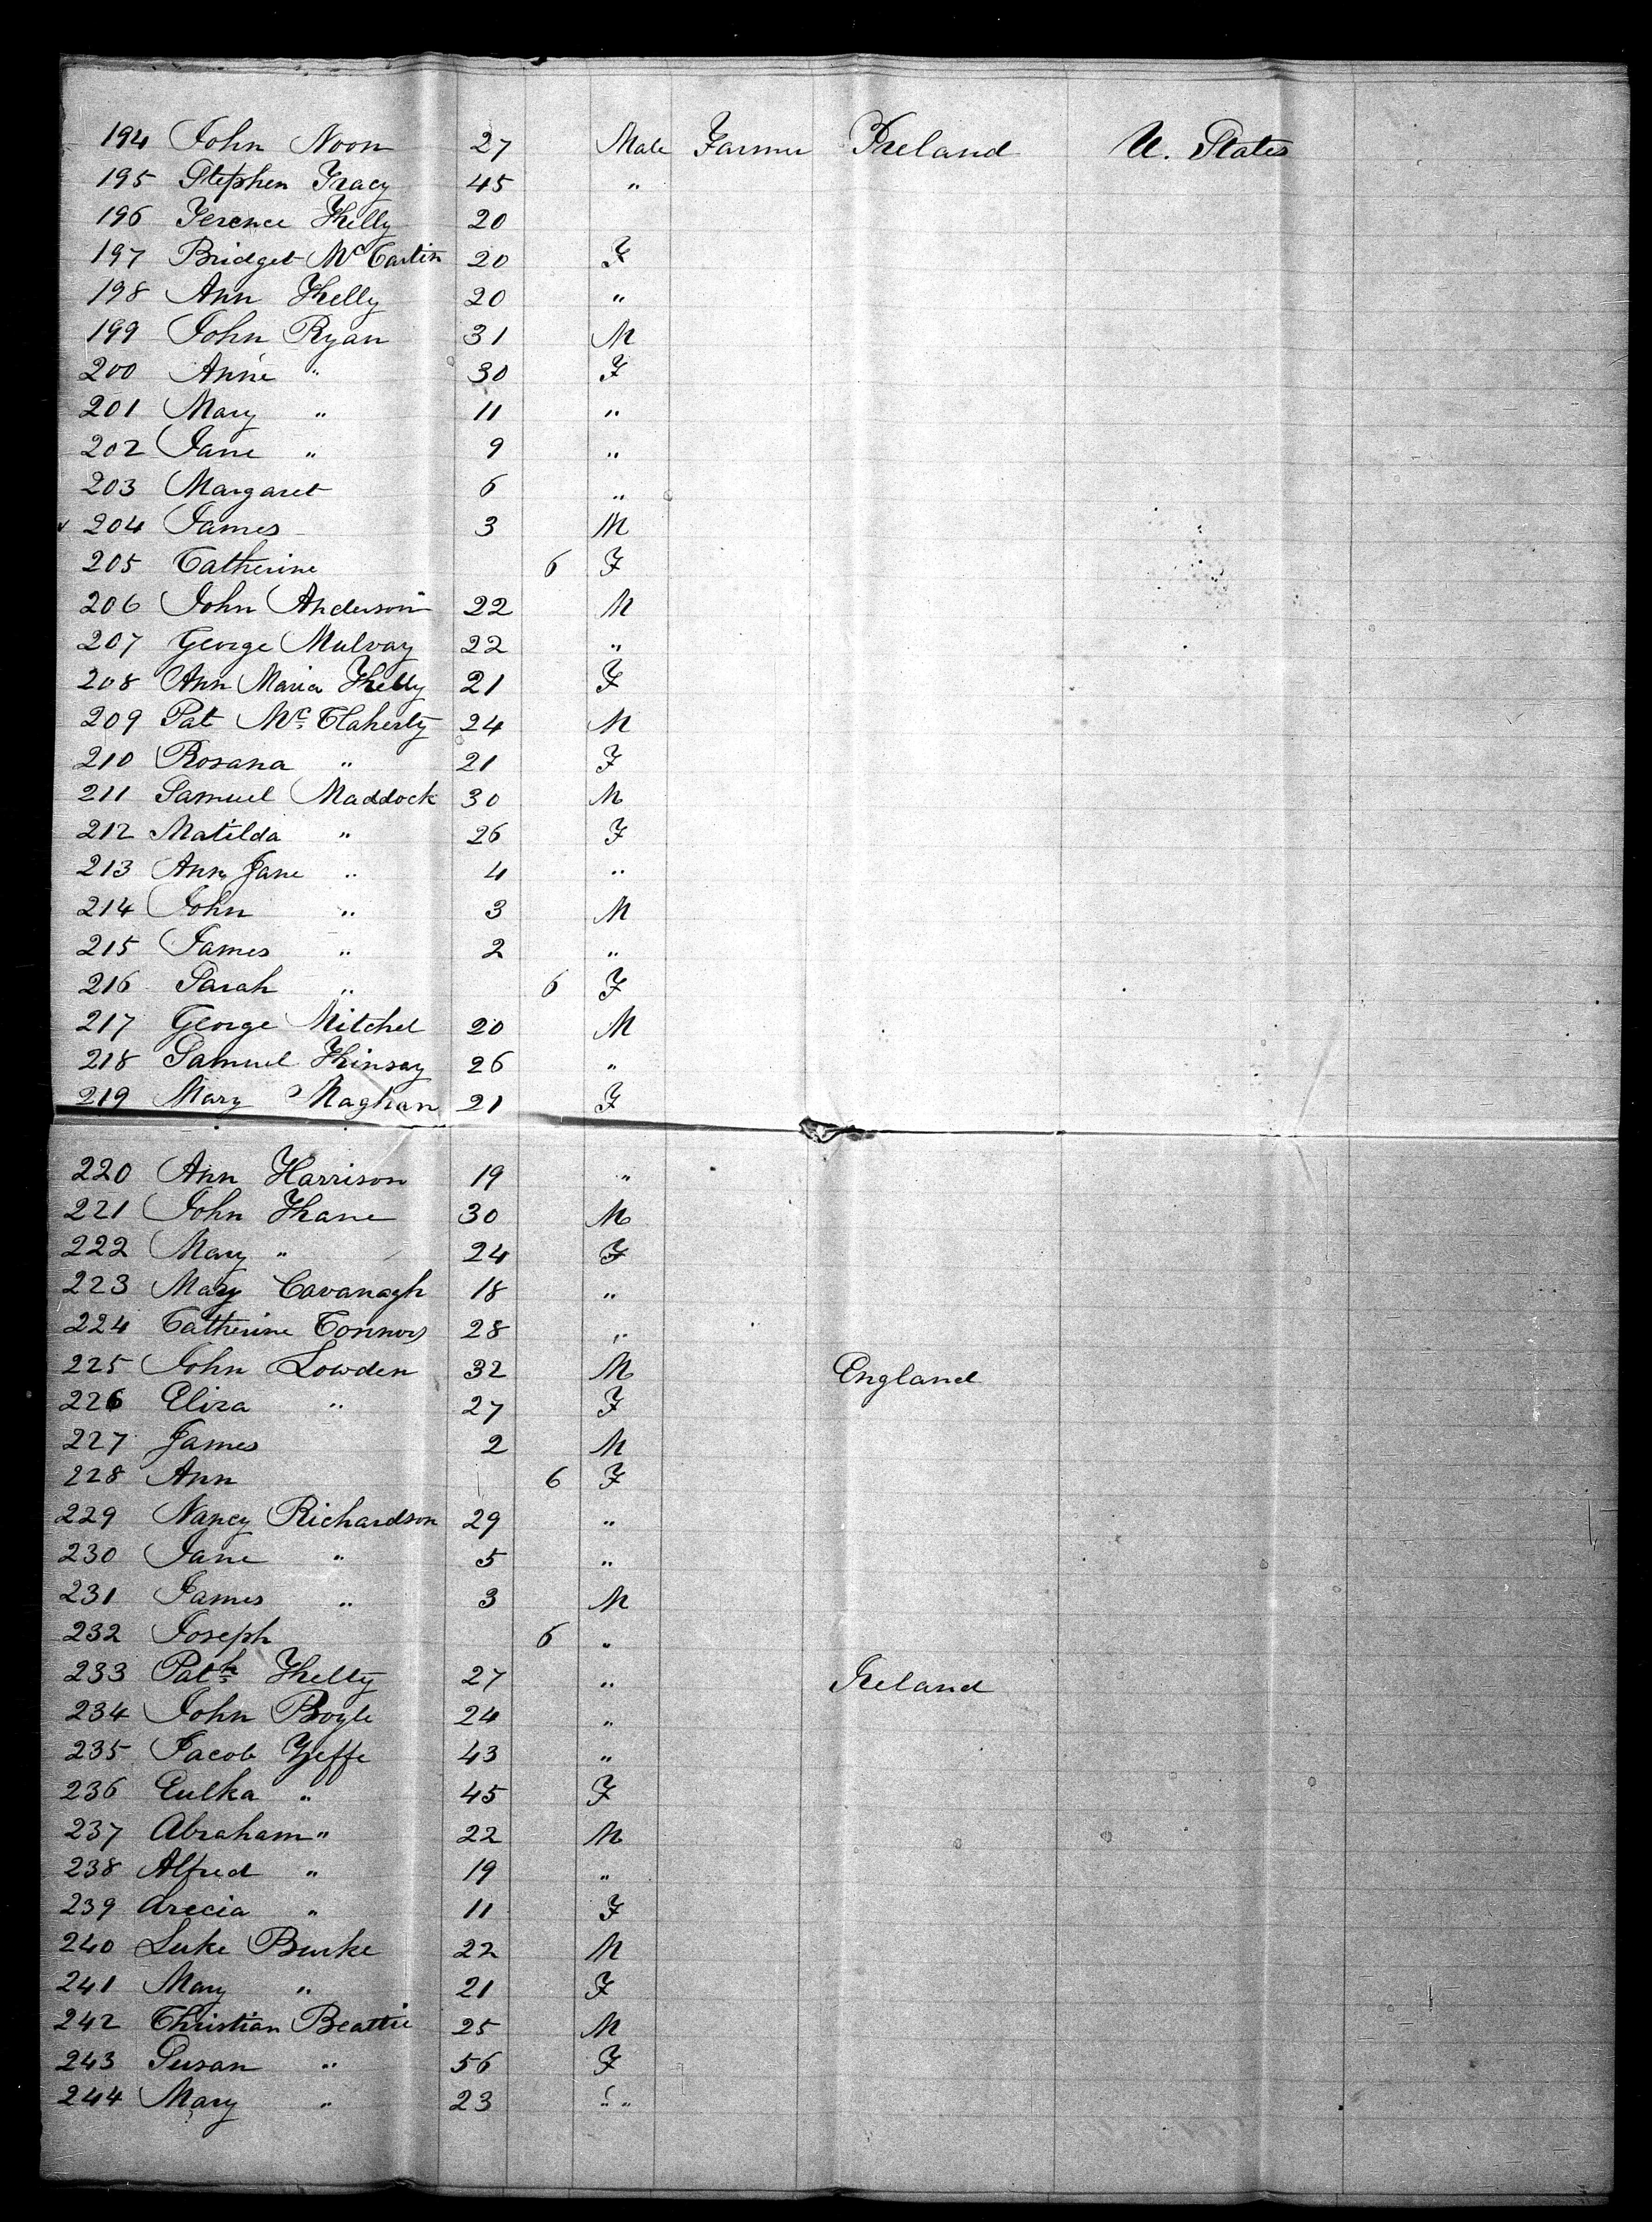 194 John Noon 27 Male Farmer Ireland U. States
195 Stephen Tracy 45 "
196 Terence Kelly 20
197 Bridget McCartin 20 F
198 Ann Kelly 20 "
199 John Ryan 31 M
200 Anne " 30 F
201 Mary " 11 "
202 Jane " 9 "
203 Margaret 6 "
204 James 3 M
205 Catherine 6 F
206 John Anderson 22 M
207 George Mulvay 22 "
208 Ann Maria Kelly 21 F
209 Pat Mc Claherty 24 M
210 Rosana " 21 F
211 Samuel Maddock 30 M
212 Matilda " 26 F
213 Ann Jane " 4 "
214 John " 3 M
215 James " 2 "
216 Sarah " 6 F
217 George Mitchel 20 M
218 Samuel Kinsay 26 "
219 Mary Maghan 21 F
220 Ann Harrison 19 "
221 John Kane 30 M
222 Mary " 24 F
223 Mary Cavanagh 18 "
224 Catherine Connors 28 "
225 John Lowden 32 M England
226 Eliza " 27 F
227 James 2 M
228 Ann 6 F
229 Nancy Richardson 29 "
230 Jane " 5 "
231 James " 3 M
232 Joseph 6 "
233 Patk Kelly 27 " Ireland
234 John Boyle 24 "
235 Jacob Yeffe 43 "
236 Eulka " 45 F
237 Abraham " 22 M
238 Alfred " 19 "
239 Arecia " 11 F
240 Luke Burke 22 M
241 Mary " 21 F
242 Christian Beattie 25 M
243 Susan " 56 F
244 Mary " 23 "